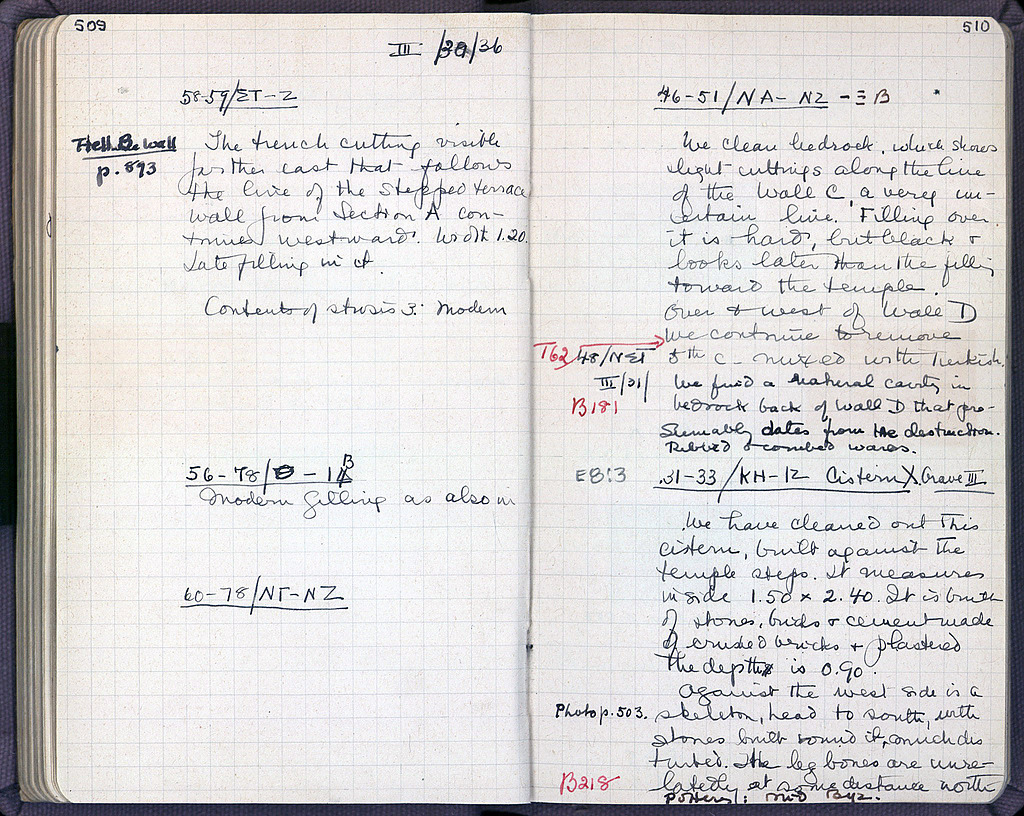 509
III /30/36
58-59/ΣΤ-Ζ
Hell. Bu. Wall
p. 893
The trench cutting visible
further east that follows
the line of the stepped terrace
wall from Section A con-
tinues westward. Width 1.20.
Late filling in it.
Contents of strosis 3: Modern
56-78/Θ - 1B
Modern filling as also in
60-78/ΝΓ-ΝΖ
510
46-51/ΝΑ- ΝΖ - Ξ Β
We clean bedrock, which shows
slight cuttings along the line
of the Wall C, a very un-
certain line. Filling over
it is hard, but black &
looks later than the filling
toward the temple.
Over & west of Wall D
we continue to remove
5th c. mixed with Turkish.
T62 48/ΝΣΤ
III/31/
B181
We find a natural cavity in
bedrock back of Wall D that pre-
sumably dates from the destruction.
Ribbed & combed wares.
EB:3
31-33/ΚΗ-ΙΖ Cistern X, Grave III
We have cleaned out this
cistern, built against the
temple steps. It measures
inside 1.50 x 2.40. It is built
of stones, bricks & cement made
of crushed bricks & plastered
the depth is 0.90.
Against the west side is a
Photo p. 503.
skeleton, head to south, with
stones built round it, much dis
turbed. The leg bones are unre-
B218
latedly at some distance north
Pottery: Mid Byz.